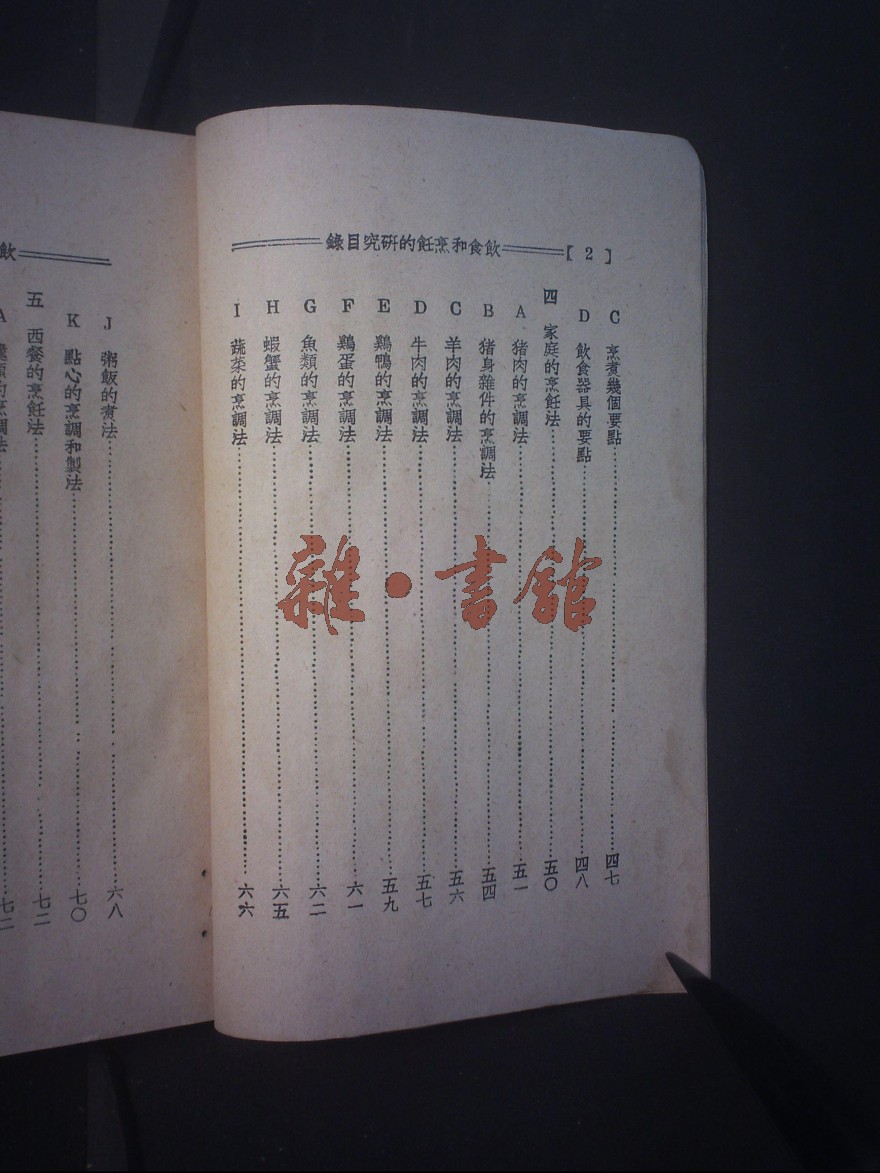 [2]
飲食和烹飪的硏究目錄
C 烹煮幾個要點 四七
D 飲食器具的要點 四八
四 家庭的烹飪法 五〇
A 猪肉的烹調法 五一
B 猪身雜件的烹調法 五四
C 羊肉的烹調法 五六
D 牛肉的烹調法 五七
E 鷄鴨的烹調法 五九
F 鷄蛋的烹調法 六一
G 魚類的烹調法 六二
H 蝦蟹的烹調法 六五
I 蔬菜的烹調法 六六
飲
J 粥飯的煮法 六八
K 點心的烹調和製法 七〇
五 西餐的烹飪法 七二
A 類的烹調法 七二
雜·書館